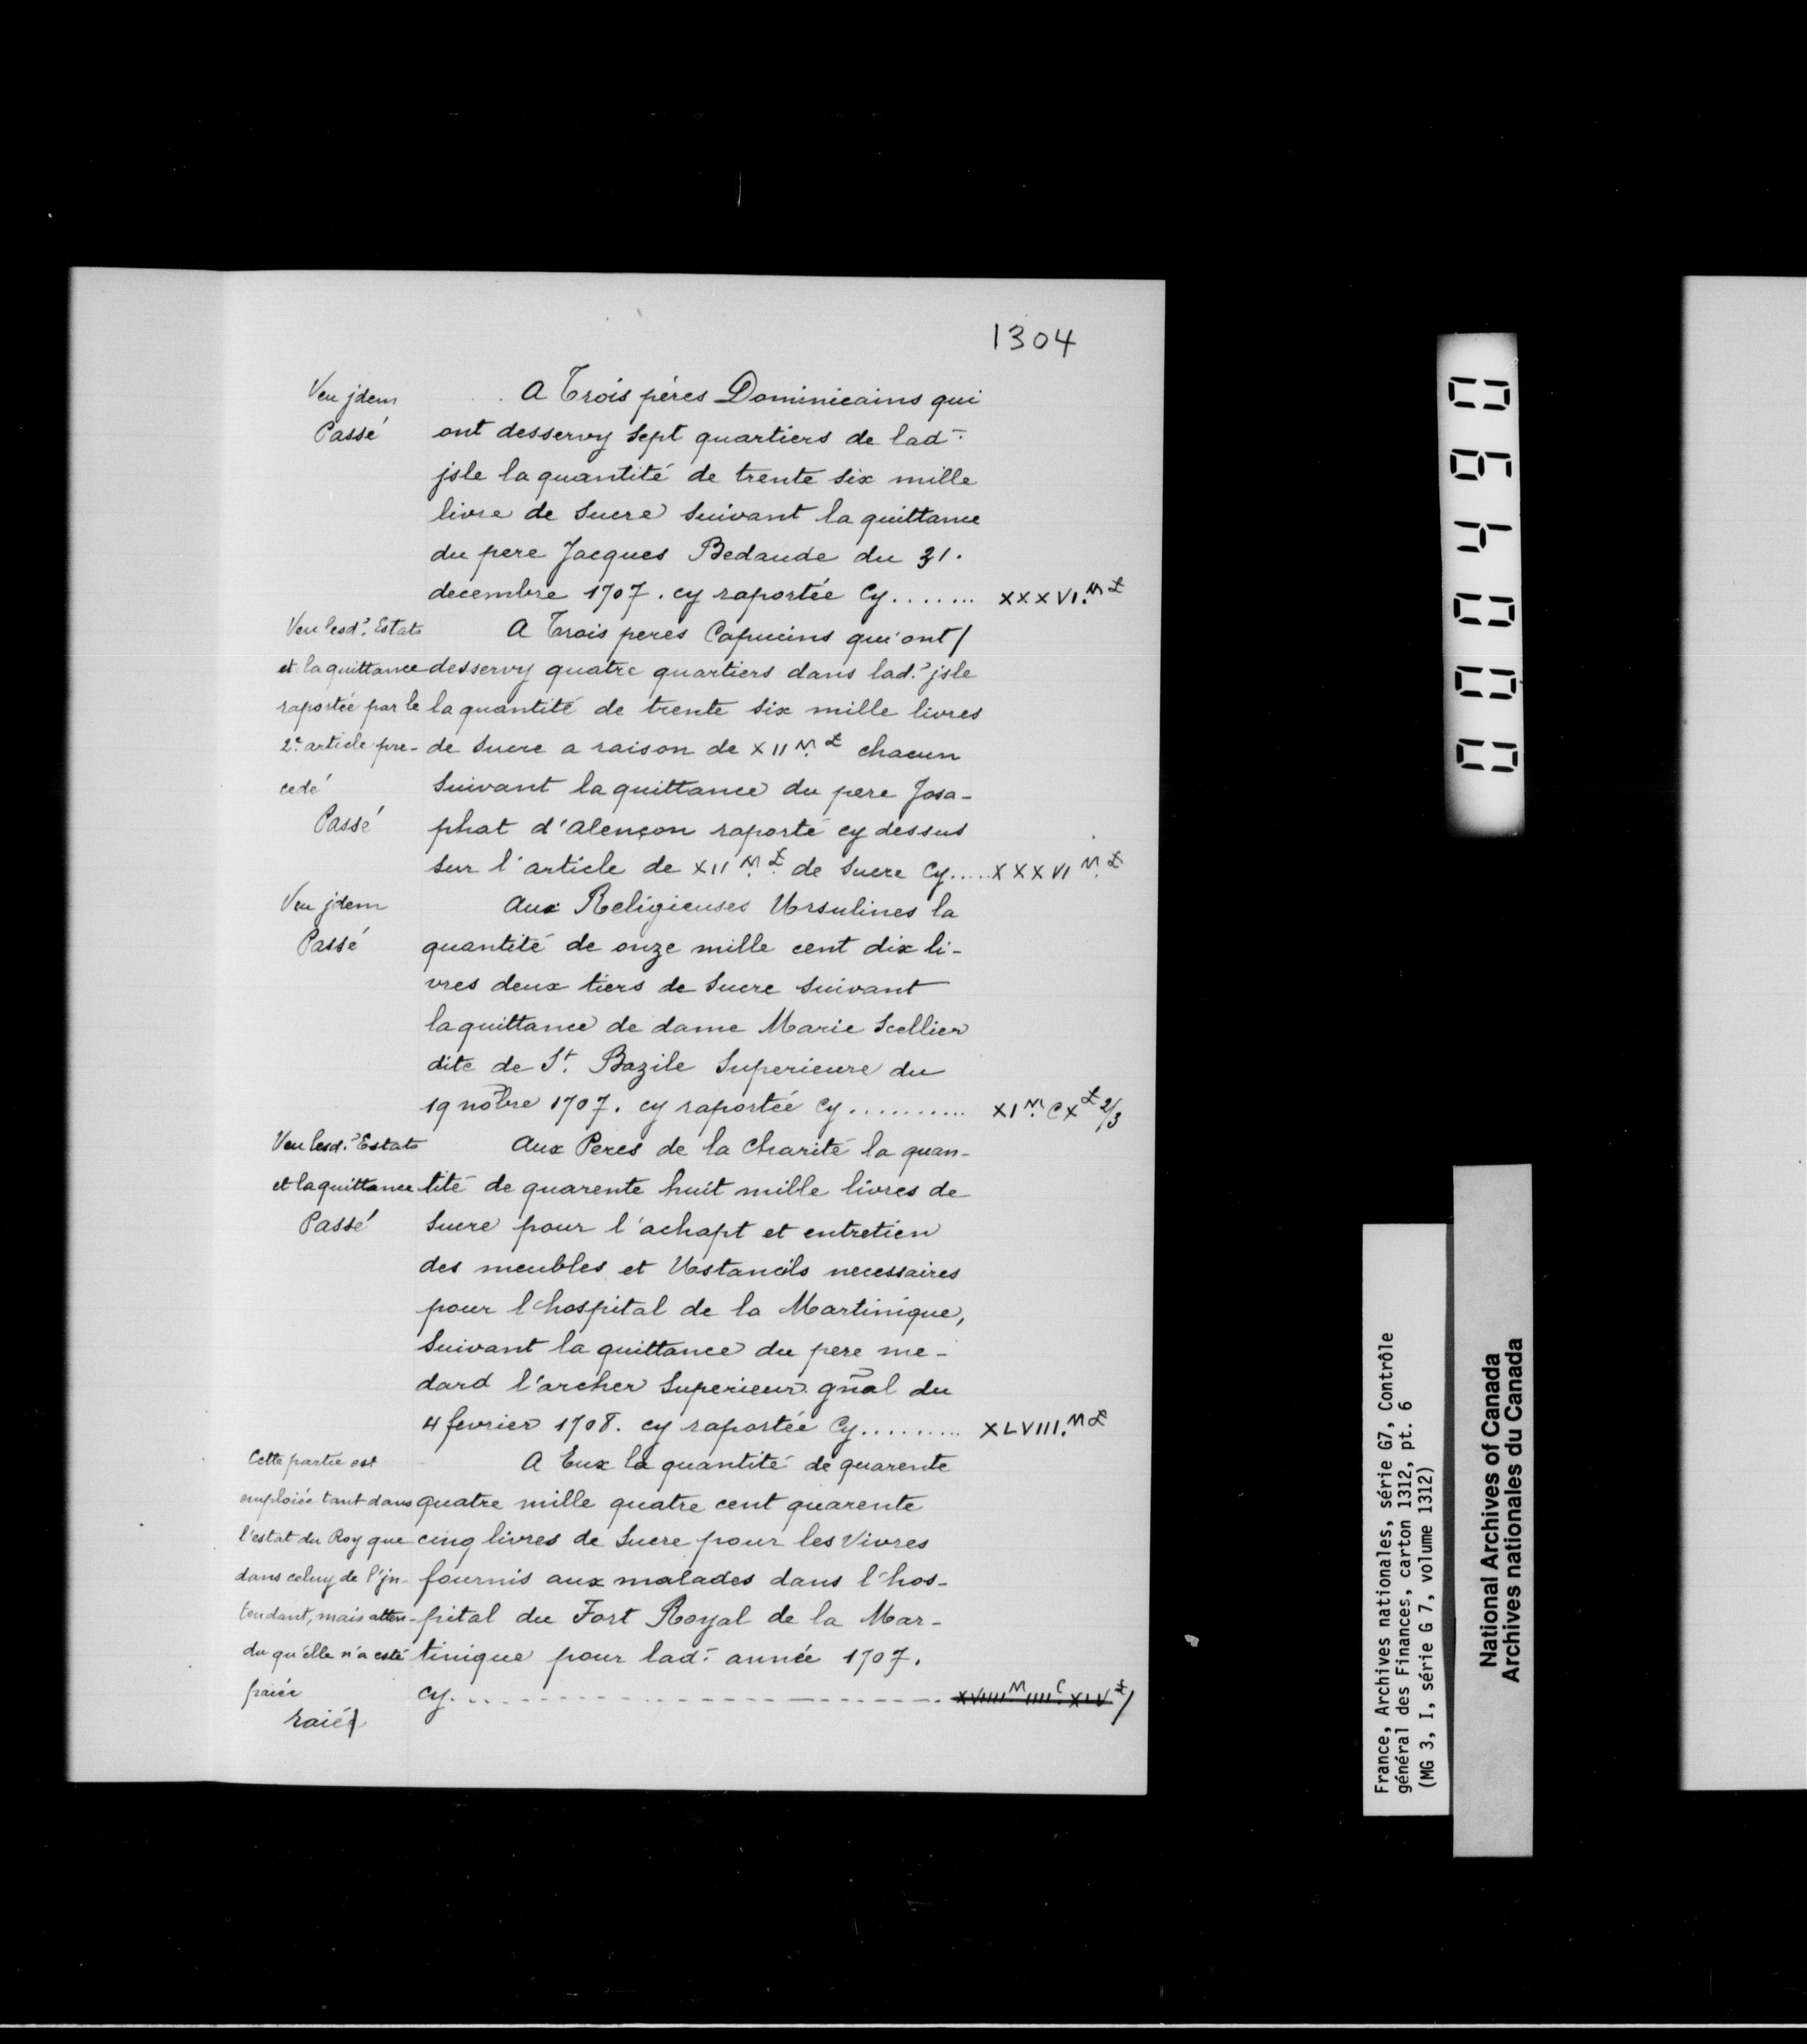 1304
Veu jdem
Passé
A Trois pères Dominicains qui
ont desservy sept quartiers de lad.
jsle la quantité de trente six mille
livre de Sucre Suivant la quittance
du pere Jacques Bedaude du 31.
decembre 1707. cy raportée Cy........ XXXVI.M ₶
Veu lesd. Estats
et la quittance
raportée par le
2e. article pre-
cedé
Passé
A Trois peres Capucins qui ont/
desservy quatre quartiers dans lad. jsle
la quantité de trente six mille livres
de Sucre a raison de XII M. ₶ chacun
Suivant la quittance du pere Josa-
phat d'alençon raporté cy dessus
sur l'article de XII M. ₶ de Sucre Cy..... XXXVI M. ₶
Veu jdem
Passé
Aux Religieuses Ursulines la
quantité de onze mille cent dix li-
vres deux tiers de Sucre Suivant
la quittance de dame Marie Scellier
dite de St. Bazile Superieure du
19 nobre 1707. cy raportée Cy.......... XI M. CX ₶ 2/3
Veu lesd. Estats
et la quittance
Passé
Aux Peres de la Charité la quan-
tité de quarente huit mille livres de
Sucre pour l'achapt et entretien
des meubles et Ustancils necessaires
pour l'hospital de la Martinique,
Suivant la quittance du pere me-
dard l'archer Superieur gnãl du
4 fevrier 1708. cy raportée Cy......... XLVIII. M ₶
Cette partie est
emploiée tant dans
l'estat du Roy que
dans celuy de l'jn-
tendant, mais atten-
du qu'elle n'a esté
paiée
raiée/
A Eux la quantité de quarente
quatre mille quatre cent quarente
cinq livres de Sucre pour les Vivres
fournis aux malades dans l'hos-
pital du Fort Royal de la Mar-
tinique pour lad. année 1707.
Cy............ XVIIII M IIII C XLV ₶/
000490
France, Archives nationales, série G7, Contrôle
général des Finances, carton 1312, pt. 6
(MG 3, I, série G 7, volume 1312)
National Archives of Canada
Archives nationales du Canada